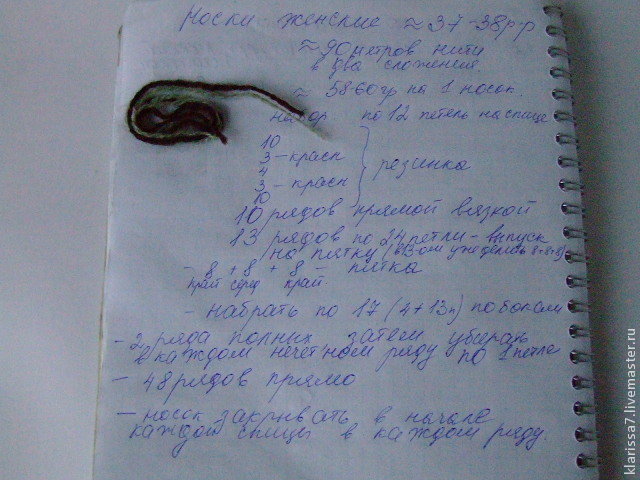 Носки женские ≈ 37-38р-р
≈ 90 метров нити
в два сложения
≈ 58-60гр на 1 носок.
набор по 12 петель на спице
10
3 - красн
4
3 - красн
10
резинка
10 рядов прямой вязкой
13 рядов по 24 петли - выпуск
на пятку (в 13-ом уже делить 8-8-8)
- 8 + 8 + 8 - пятка
край серед край.
- набрать по 17 (4+13п) по бокам
- 2 ряда полных затем убирать
в каждом нечётном ряду по 1 петле
- 48 рядов прямо
- носок закрывать в начале
каждой спицы в каждом ряду
klarissa7.livemaster.ru